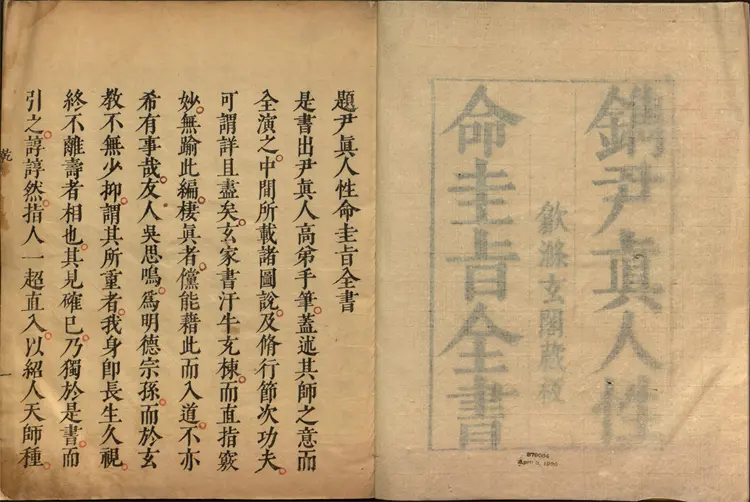 鐫尹眞人性
歙滌玄閣藏板
命圭旨全書
題尹眞人性命圭旨全書
是書出尹眞人高弟手筆。蓋述其師之意而
全演之。中間所載諸圖說。及脩行節次功夫。
可謂詳且盡矣。玄家書汗牛充棟。而直指竅
妙。無踰此編。棲眞者。儻能藉此而入道。不亦
希有事哉。友人吳思鳴。爲明德宗孫。而於玄
教不無少抑。謂其所重者。我身卽長生久視。
終不離壽者相也。其見確已。乃獨於是書而
引之。諄諄然。指人一超直入。以紹人天師種。
乾
一